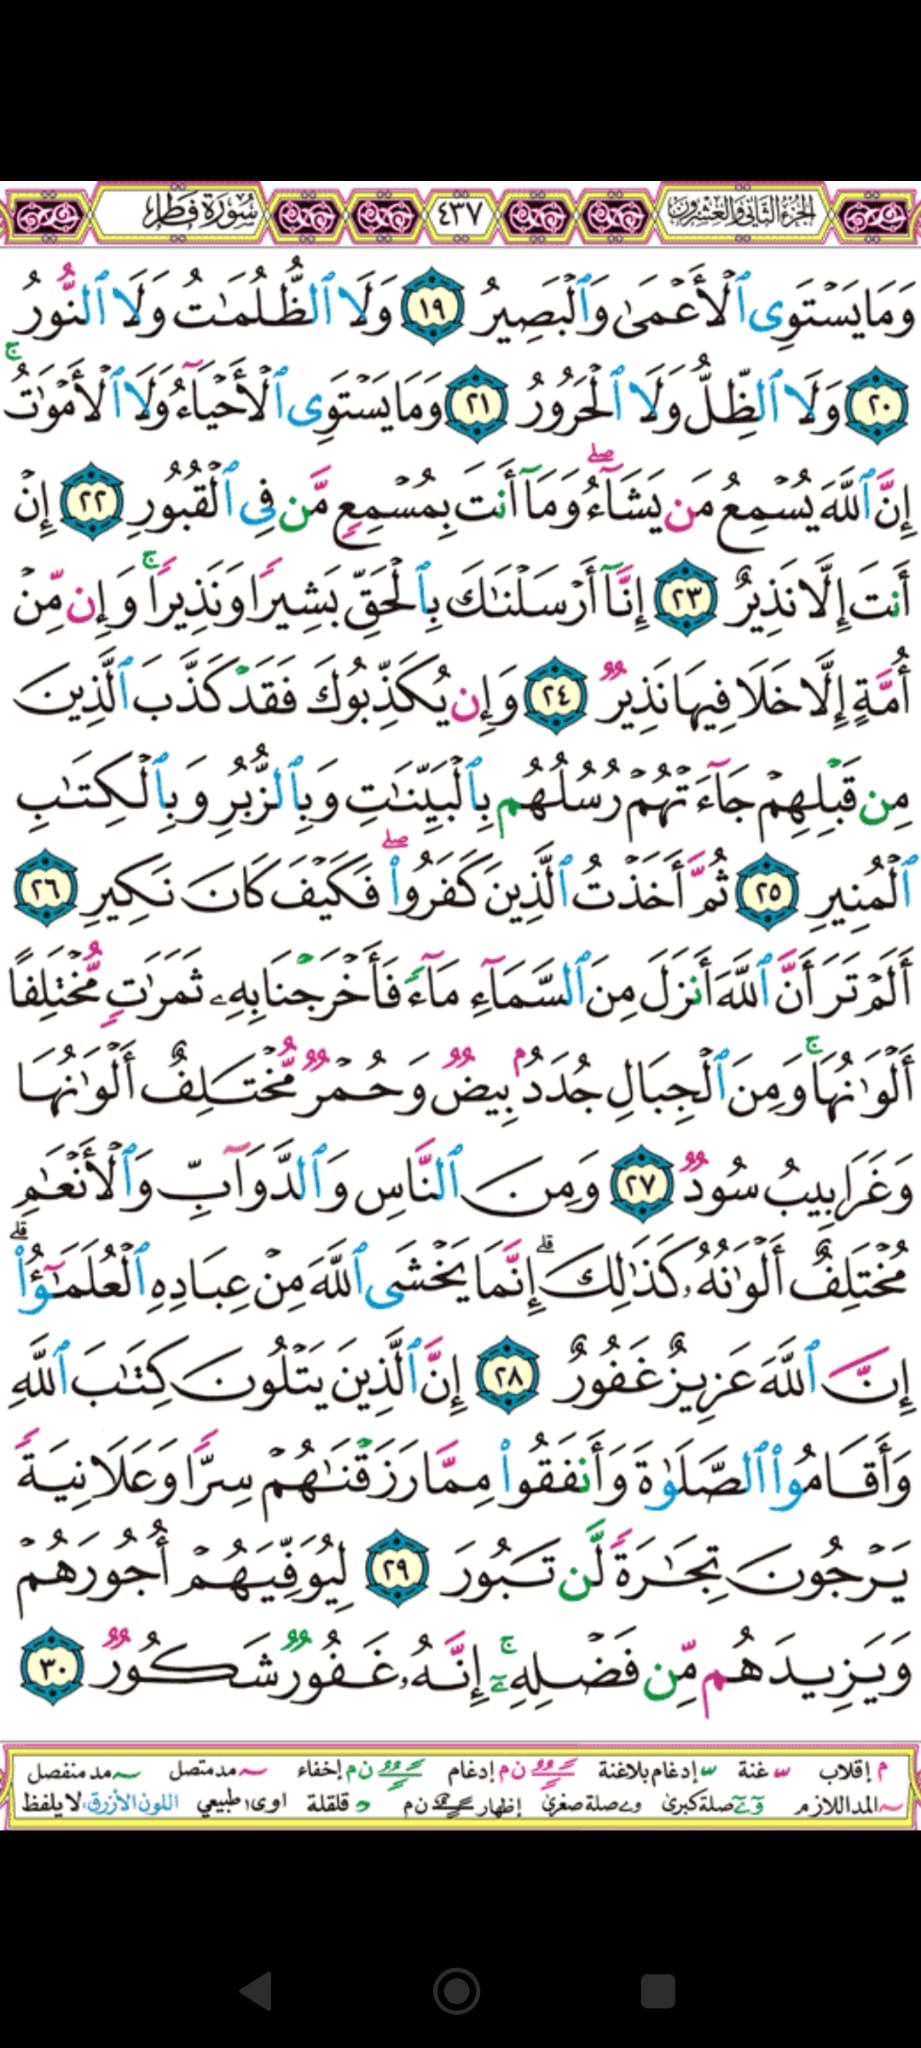 الجزء الثاني والعشرون ٤٣٧ سورة فاطر
وَمَا يَسْتَوِى ٱلْأَعْمَىٰ وَٱلْبَصِيرُ ١٩ وَلَا ٱلظُّلُمَـٰتُ وَلَا ٱلنُّورُ
٢٠ وَلَا ٱلظِّلُّ وَلَا ٱلْحَرُورُ ٢١ وَمَا يَسْتَوِى ٱلْأَحْيَآءُ وَلَا ٱلْأَمْوَٰتُ ۚ
إِنَّ ٱللَّهَ يُسْمِعُ مَن يَشَآءُ ۖ وَمَآ أَنتَ بِمُسْمِعٍ مَّن فِى ٱلْقُبُورِ ٢٢ إِنْ
أَنتَ إِلَّا نَذِيرٌ ٢٣ إِنَّآ أَرْسَلْنَـٰكَ بِٱلْحَقِّ بَشِيرًا وَنَذِيرًا ۚ وَإِن مِّنْ
أُمَّةٍ إِلَّا خَلَا فِيهَا نَذِيرٌ ٢٤ وَإِن يُكَذِّبُوكَ فَقَدْ كَذَّبَ ٱلَّذِينَ
مِن قَبْلِهِمْ جَآءَتْهُمْ رُسُلُهُم بِٱلْبَيِّنَـٰتِ وَبِٱلزُّبُرِ وَبِٱلْكِتَـٰبِ
ٱلْمُنِيرِ ٢٥ ثُمَّ أَخَذْتُ ٱلَّذِينَ كَفَرُوا۟ ۖ فَكَيْفَ كَانَ نَكِيرِ ٢٦
أَلَمْ تَرَ أَنَّ ٱللَّهَ أَنزَلَ مِنَ ٱلسَّمَآءِ مَآءً فَأَخْرَجْنَا بِهِۦ ثَمَرَٰتٍ مُّخْتَلِفًا
أَلْوَٰنُهَا ۚ وَمِنَ ٱلْجِبَالِ جُدَدٌۢ بِيضٌ وَحُمْرٌ مُّخْتَلِفٌ أَلْوَٰنُهَا
وَغَرَابِيبُ سُودٌ ٢٧ وَمِنَ ٱلنَّاسِ وَٱلدَّوَآبِّ وَٱلْأَنْعَـٰمِ
مُخْتَلِفٌ أَلْوَٰنُهُۥ كَذَٰلِكَ ۗ إِنَّمَا يَخْشَى ٱللَّهَ مِنْ عِبَادِهِ ٱلْعُلَمَـٰٓؤُا۟ ۗ
إِنَّ ٱللَّهَ عَزِيزٌ غَفُورٌ ٢٨ إِنَّ ٱلَّذِينَ يَتْلُونَ كِتَـٰبَ ٱللَّهِ
وَأَقَامُوا۟ ٱلصَّلَوٰةَ وَأَنفَقُوا۟ مِمَّا رَزَقْنَـٰهُمْ سِرًّا وَعَلَانِيَةً
يَرْجُونَ تِجَـٰرَةً لَّن تَبُورَ ٢٩ لِيُوَفِّيَهُمْ أُجُورَهُمْ
وَيَزِيدَهُم مِّن فَضْلِهِۦٓ ۚ إِنَّهُۥ غَفُورٌ شَكُورٌ ٣٠
م إقلاب غنة إدغام بلاغنة ن م إدغام ن م إخفاء مد متصل مد منفصل
المد اللازم صلة كبرى و ے صلة صغرى إظهار ن م قلقلة اوى طبيعي اللون الأزرق: لا يلفظ